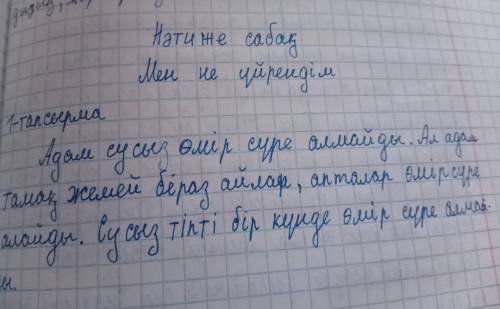 Нәтиже сабақ
Мен не үйрендім
1-тапсырма
Адам сусыз өмір сүре алмайды. Ал адам
тамақ жемей біраз айлар, апталар өмір сүре
алайды. Сусыз тіпті бір күнде өмір сүре алмай-